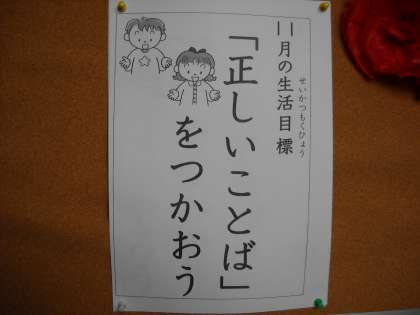 11月の生活目標
せいかつもくひょう
「正しいことば」
をつかおう